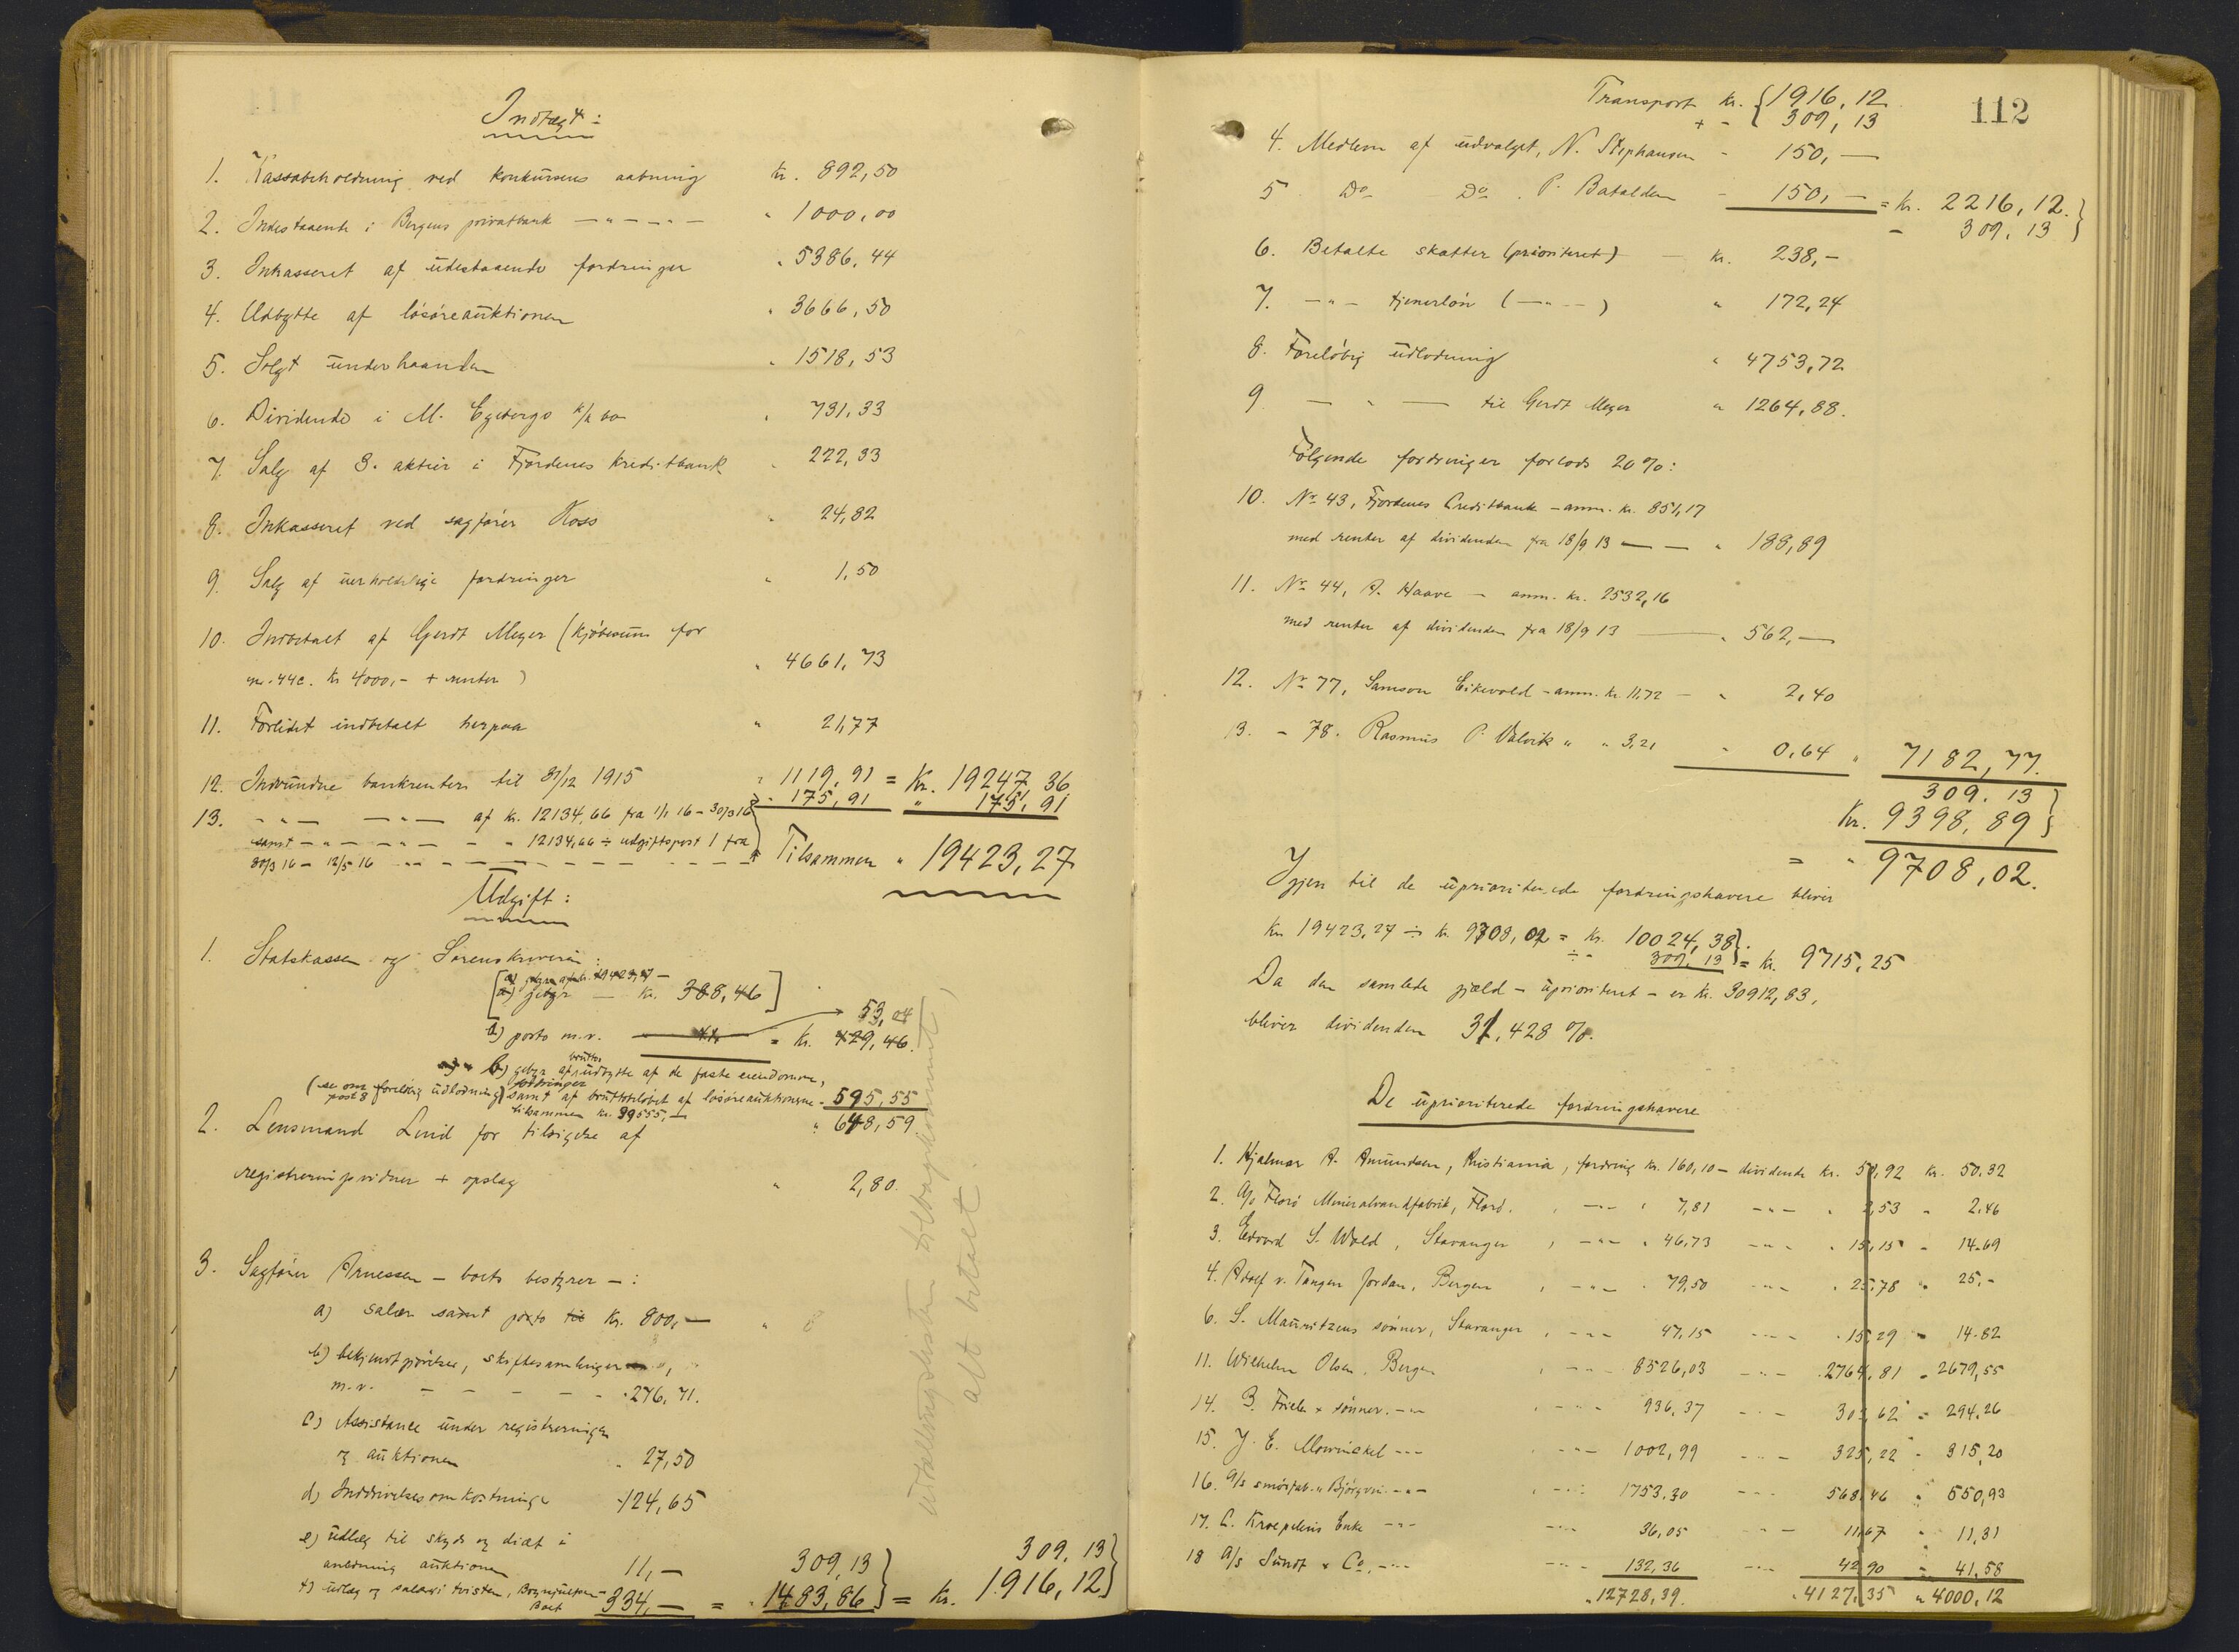 Indtægt:
1. Kassabeholdning ved konkursens aabning kr. 892,50
2. Indestaaende i Bergens privatbank — " — " — " 1000,00
3. Inkasseret af udestaaende fordringer " 5386,44
4. Udbytte af løsøreauktionen " 3666,50
5. Solgt underhaanden " 1518,53
6. Dividende i M. Egebergs k/k bo " 731,33
7. Salg af 3. aktier i Fjordenes kreditbank " 222,33
8. Inkasseret ved sagfører Koss " 24,82
9. Salg af uerholdelige fordringer " 1,50
10. Indbetalt af Gerdt Meyer (kjøbesum for
nr. 44c. kr 4000,- + renter) " 4661,73
11. Forlidet indbetalt herpaa " 21,77
12. Indvundne bankrenter til 31/12 1915 " 1119,91 = Kr. 19247,36
13. — " — — " — af kr. 12134,66 fra 1/1 16 - 30/3 16 " 175,91 " 175,91
samt — " — — " — " 12134,66 ÷ udgiftspost 1 fra
30/3 16 - 12/5 16 Tilsammen " 19423,27
Udgift:
1. Statskassen og Sorenskriveren:
[a) gebyr af kr. 19423,27 —
a) gebyr — kr. 388,46]
a) porto m.v. — 41. — 53,04
= Kr. 429,46.
b) gebyr af brutto udbytte af de faste eiendomme,
fordringer
(se om foreløbig udlodning post 8) samt af bruttobeløbet af løsøreauktionerne - 595,55
tilsammen kr. 39555,-
" 648,59.
2. Lensmand Lind for tilsigelse af
registreringsvidner + opslag " 2,80.
3. Sagfører Arnessen - boets bestyrer - :
a) salær samt porto til Kr. 800,—
b) bekjendtgjørelser, skiftesamlinger
m.v. — — — — - 276,71.
c) Assistance under registreringen
og auktionen " 27,50
d) Inddrivelsesomkostninger - 124,65
e) udlæg til skyds og diæt i
anledning auktionen 11,— 309,13 } 309,13 }
f) udlæg og salær i tvisten, Bognjulsen - boet 334,— = " 1483,86 } = kr. 1916,12 }
utdelningslisten tilbakekommet,
alt betalt.
112
Transport kr. { 1916,12
+ - { 309,13
4. Medlem af udvalget, N. Stephansen - 150,—
5. Do Do. P. Batalden - 150,— = kr. 2216,12. }
- 309,13 }
6. Betalte skatter (prioriteret) — kr. 238,-
7. — " — tjenerløn (— " —) " 172,24
8. Foreløbig udlodning " 4753,72
9. — " — til Gerdt Meyer " 1264,88.
Følgende fordringer forlods 20%:
10. No 43, Fjordenes Creditbank - anm. kr. 851,17
med renter af dividenden fra 18/9 13 — — " 188,89
11. No 44, A. Haave — anm. kr. 2532,16
med renter af dividenden fra 18/9 13 — " 562,—
12. No 77, Samson Eikevold - anm. kr. 11,72 — " 2,40
13. - 78. Rasmus P. Valvik " " 3,21 " 0,64 " 7182,77.
309.13 }
Kr. 9398,89 }
= " 9708,02.
Igjen til de uprioriterede fordringshavere bliver
kr. 19423,27 ÷ kr. 9708,02 = kr. 10024,38 }
÷ - 309,13 } = kr. 9715,25
Da den samlede gjæld - uprioriteret - er kr. 30912,83,
bliver dividenden 31,428 %.
De uprioriterede fordringshavere
1. Hjalmar A. Amundsen, Kristiania, fordring kr. 160,10 — dividende kr. 50,92 kr. 50.32
2. A/S Florø Mineralvandfabrik, Florø. " — " — " 7,81 — " — " 2,53 " 2.46
3. Edvard S. Wold, Stavanger " — " — " 46.73 — " — " 15,15 " 14.69
4. Adolf v. Tangen Jordan, Bergen " — " — " 79,50 — " — " 25,78 " 25.-
6. S. Mauritzens sønner, Stavanger " — " — 47,15 — " — " 15,29 " 14.82
11. Wilhelm Olsen, Bergen " — " — 8526,03 — " — " 2764,81 " 2679,55
14. B. Friele & sønner. — " — " — " — 936,37 — " — 303,62 " 294.26
15. J. E. Mowinckel — " — " — " — 1002,99 — " — 325,22 " 315,20
16. A/S smørfab. "Bjørgvin" — " — " — " — 1753,30 — " — 568,46 " 550,93
17. C. Kroepeliens Enke — " — — " — 36,05 — " — 11,67 " 11,31
18 A/S Sundt & Co. — " — — " — 132,36 — " — 42,90 " 41,58
" 12728,39. " 4127,35 " 4000,12